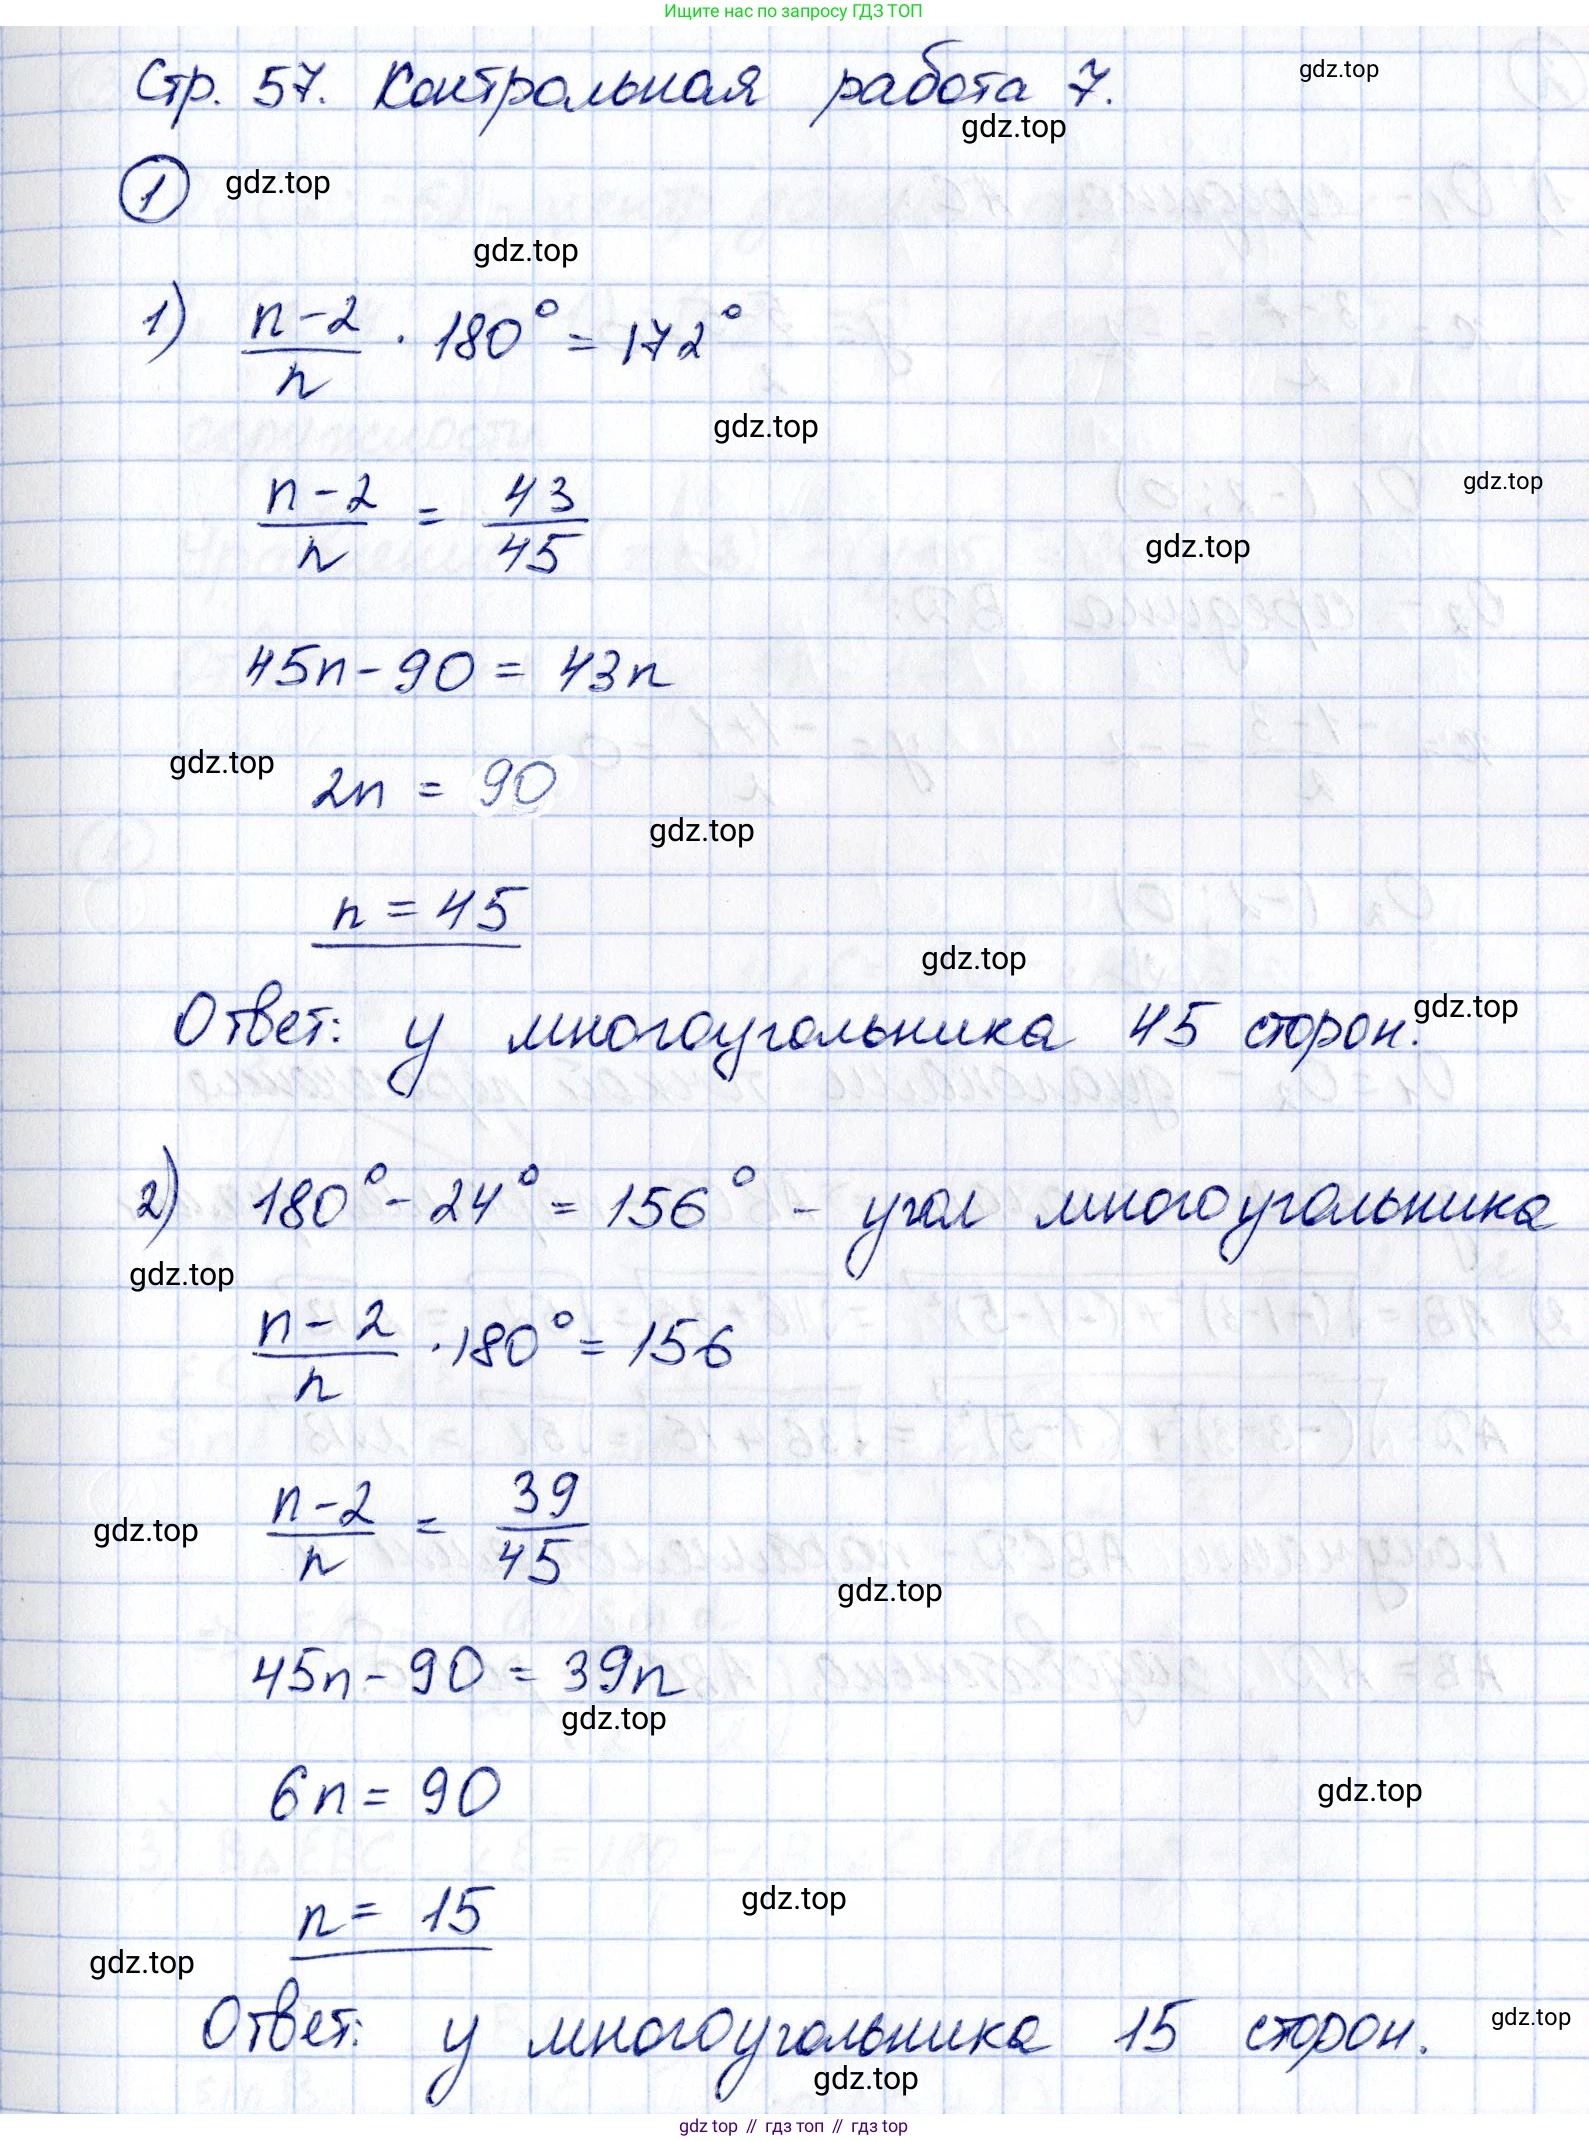 Ищите нас по запросу ГДЗ ТОП
Стр. 57. Контрольная работа 7.
gdz.top
gdz.top
1 gdz.top
gdz.top
1) (n-2)/n · 180° = 172°
gdz.top
(n-2)/n = 43/45
gdz.top
gdz.top
45n - 90 = 43n
gdz.top
2n = 90
gdz.top
n = 45
gdz.top
Ответ: у многоугольника 45 сторон.
gdz.top
2) 180° - 24° = 156° - угол многоугольника
gdz.top
(n-2)/n · 180° = 156
(n-2)/n = 39/45
gdz.top
gdz.top
45n - 90 = 39n
gdz.top
6n = 90
gdz.top
n = 15
gdz.top
gdz.top
Ответ: у многоугольника 15 сторон.
gdz.top
gdz.top
gdz top // гдз топ // гдз top